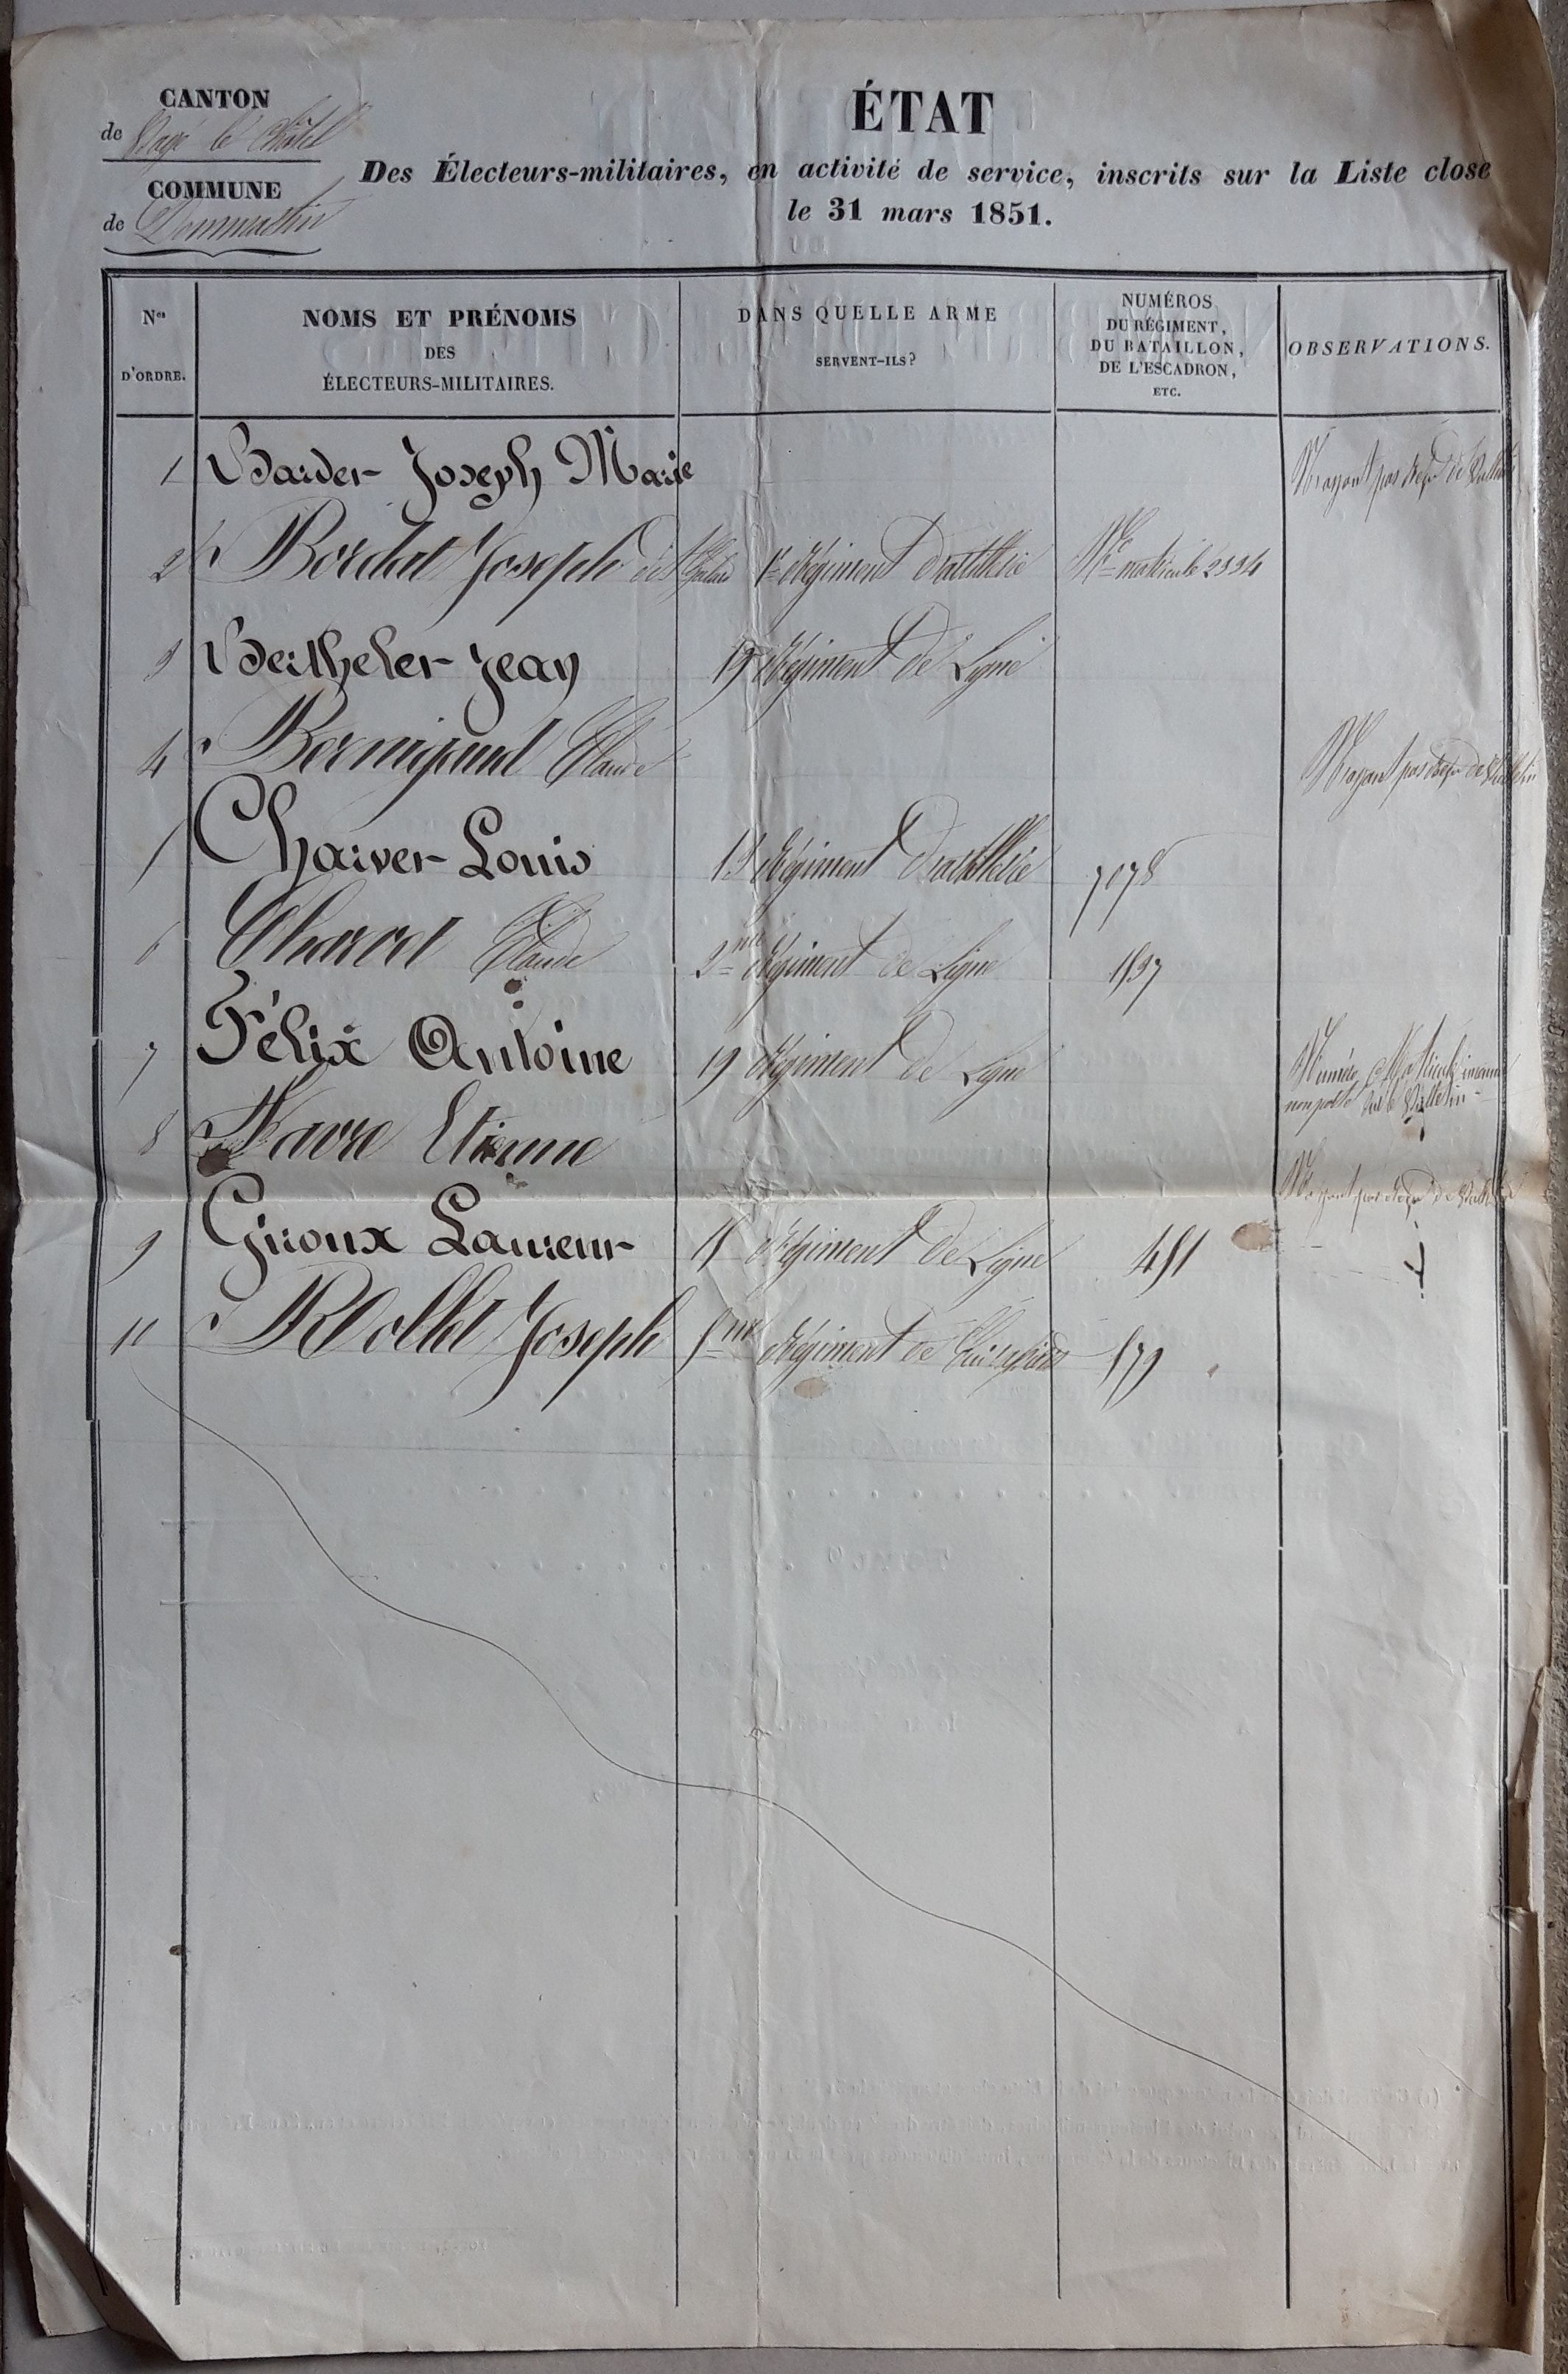 CANTON
de Bagé le Châtel
COMMUNE
de Dommartin
ÉTAT
Des Électeurs-militaires, en activité de service, inscrits sur la Liste close
le 31 mars 1851.
Nos D'ORDRE.
NOMS ET PRÉNOMS
DES
ÉLECTEURS-MILITAIRES.
DANS QUELLE ARME
SERVENT-ILS?
NUMÉROS
DU RÉGIMENT,
DU BATAILLON,
DE L'ESCADRON,
ETC.
OBSERVATIONS.
1 Joseph Marie N'ayant pas reçu de Bulletin
2 Joseph dit 1er Régiment d'artillerie No matricule 2334
3 Berthelet Jean 19 Régiment de Ligne
4 Claude N'ayant pas reçu de Bulletin
5 Louis 13 Régiment d'artillerie 7078
6 Claude 2me Régiment de Ligne
7 Félix Antoine 19 Régiment de Ligne Numéro Matricule inconnu
non porté sur le Bulletin
8 Favre Etienne N'ayant pas reçu de Bulletin
9 Giroux Laurent Régiment de Ligne 451
10 Rollet Joseph 5me Régiment de Cuirassiers 579